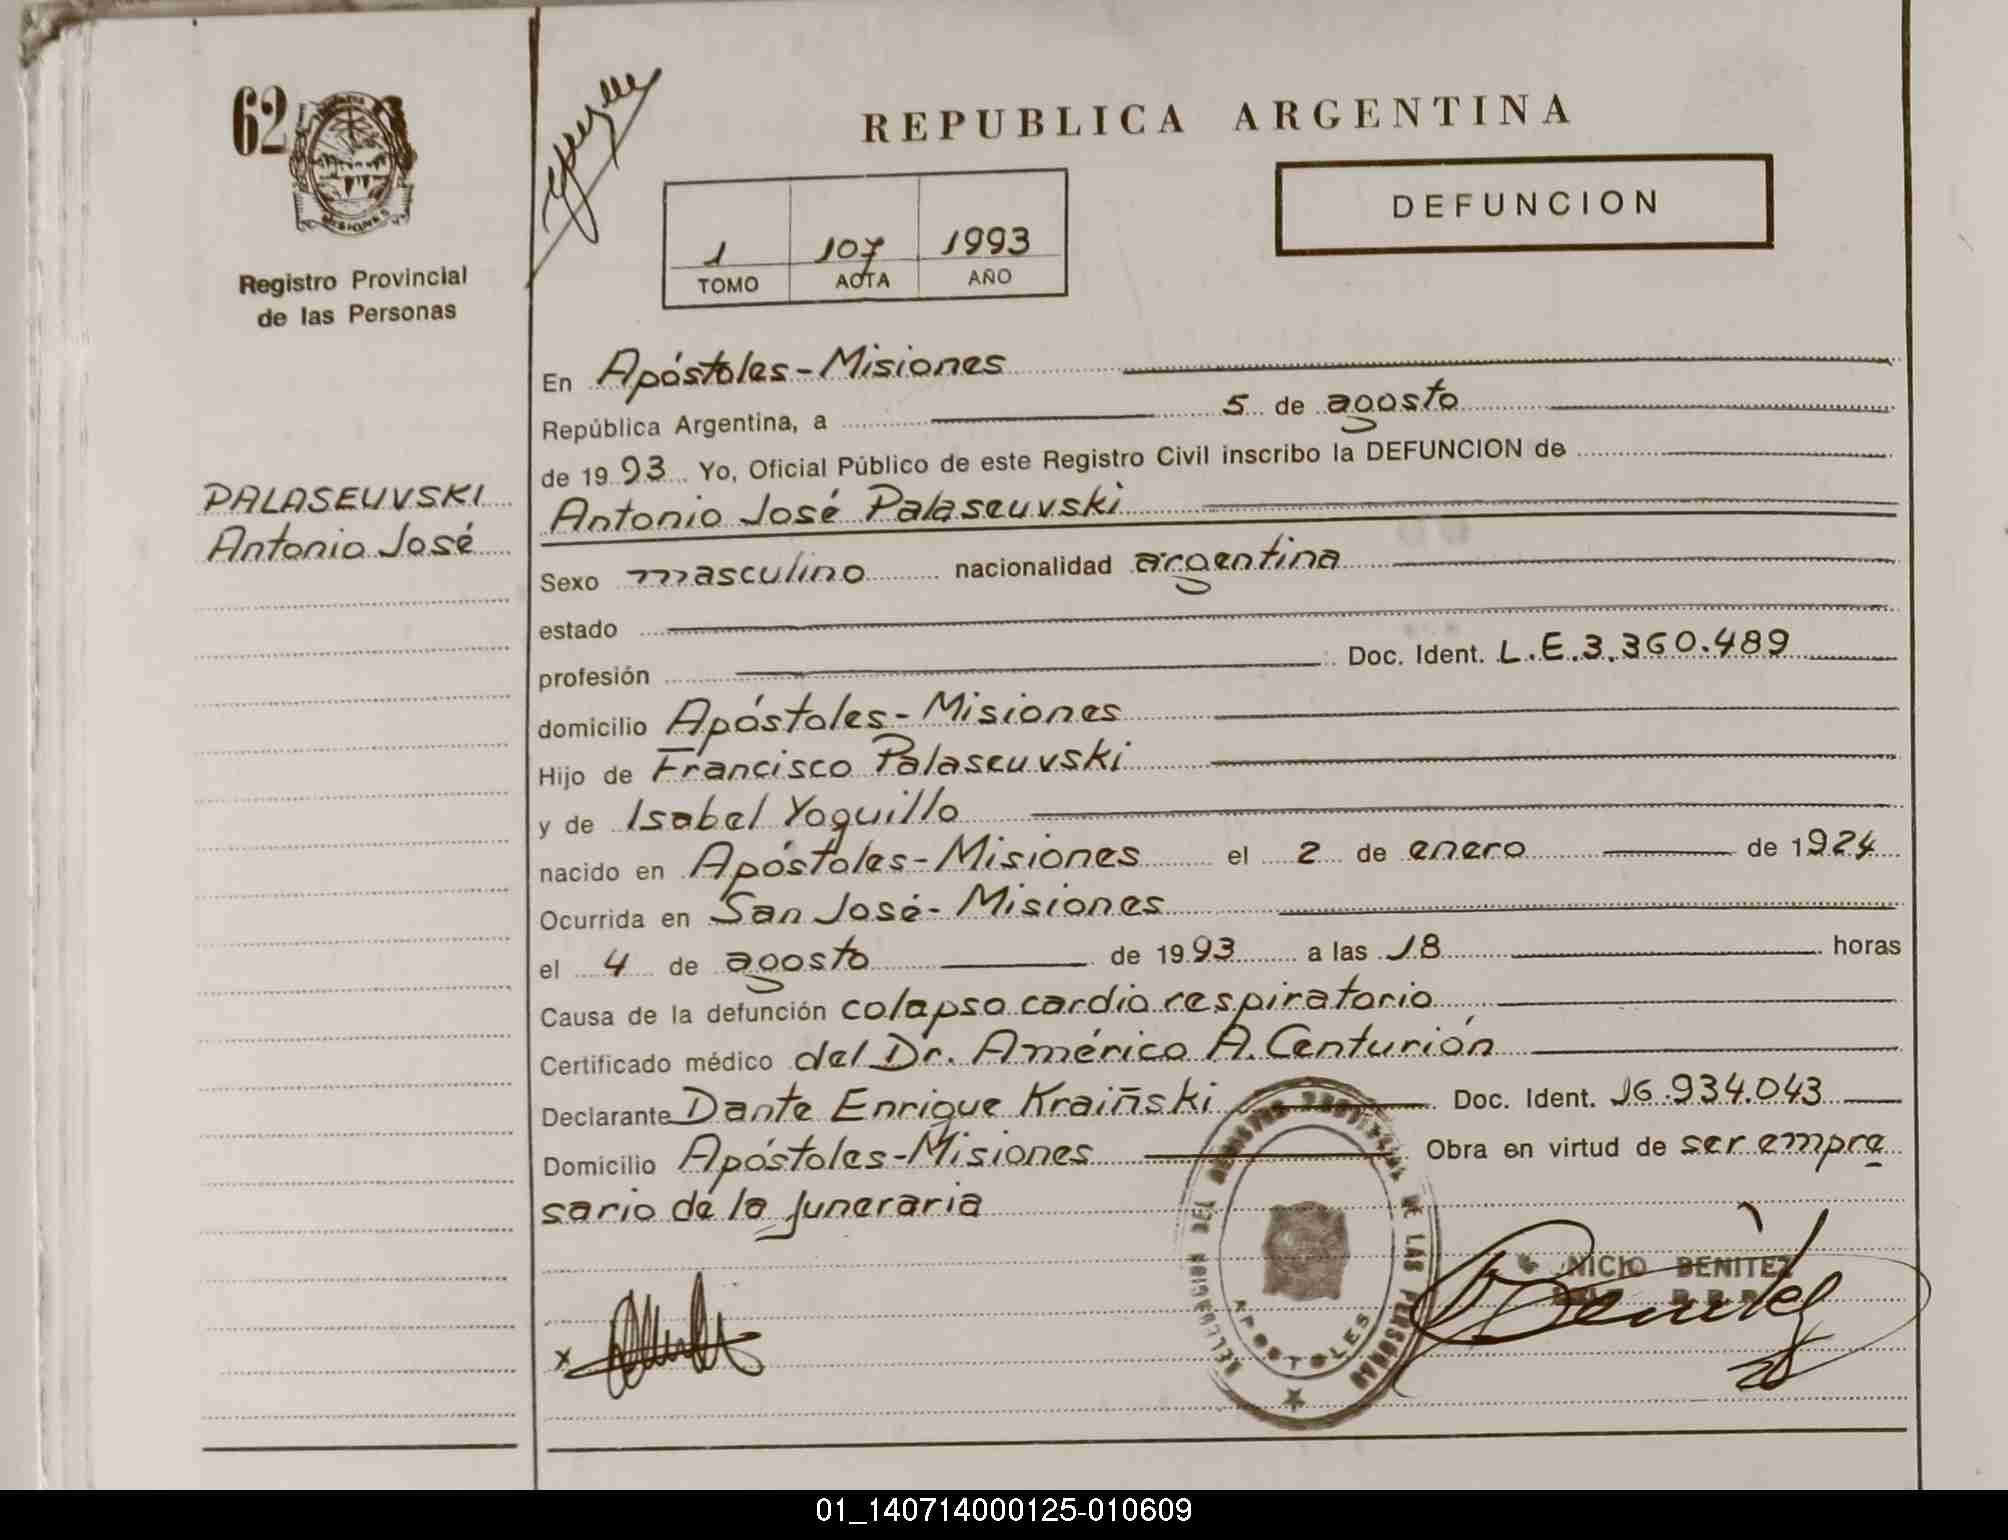 62
MISIONES
Registro Provincial
de las Personas
PALASEUVSKI
Antonio José
REPUBLICA ARGENTINA
DEFUNCION
1 107 1993
TOMO ACTA AÑO
En Apóstoles-Misiones
República Argentina, a 5 de agosto
de 1993 Yo, Oficial Público de este Registro Civil inscribo la DEFUNCION de
Antonio José Palaseuvski
Sexo masculino nacionalidad argentina
estado
profesión Doc. Ident. L.E.3.360.489
domicilio Apóstoles-Misiones
Hijo de Francisco Palaseuvski
y de Isabel Yoguillo
nacido en Apóstoles-Misiones el 2 de enero de 1924
Ocurrida en San José-Misiones
el 4 de agosto de 1993 a las 18 horas
Causa de la defunción colapso cardio respiratorio
Certificado médico del Dr. Américo A. Centurión
Declarante Dante Enrique Kraiñski Doc. Ident. 16.934.043
Domicilio Apóstoles-Misiones Obra en virtud de ser empre
sario de la funeraria
x
DELEGACION DEL REGISTRO PROVINCIAL DE LAS PERSONAS
APOSTOLES
NICIO BENITEZ
01_140714000125-010609